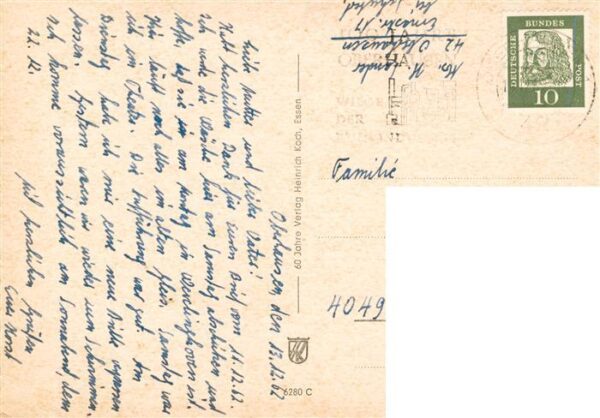 Oberhausen, den 13.12.62
Liebe Mutter und lieber Vater!
Habt herzlichen Dank für Euren Brief vom 11.12.62.
Ich werde die Wäsche hier am Samstag abschicken und
hoffe, daß sie am Montag in Wevelinghoven ist.
Hier läuft noch alles im alten Gleis. Samstag war
ich im Theater. Die Aufführung war gut. Am
Dienstag habe ich mir eine neue Brille
lassen. Gestern waren wir wieder zum Schwimmen.
Ich komme voraussichtlich am Sonnabend, dem
22.12.
Mit herzlichen Grüßen
Euer Horst
60 Jahre Verlag Heinrich Koch, Essen
6280 C
42 Oberhausen
DEUTSCHE BUNDES POST
10
WIEGE
DER
Familie
4049